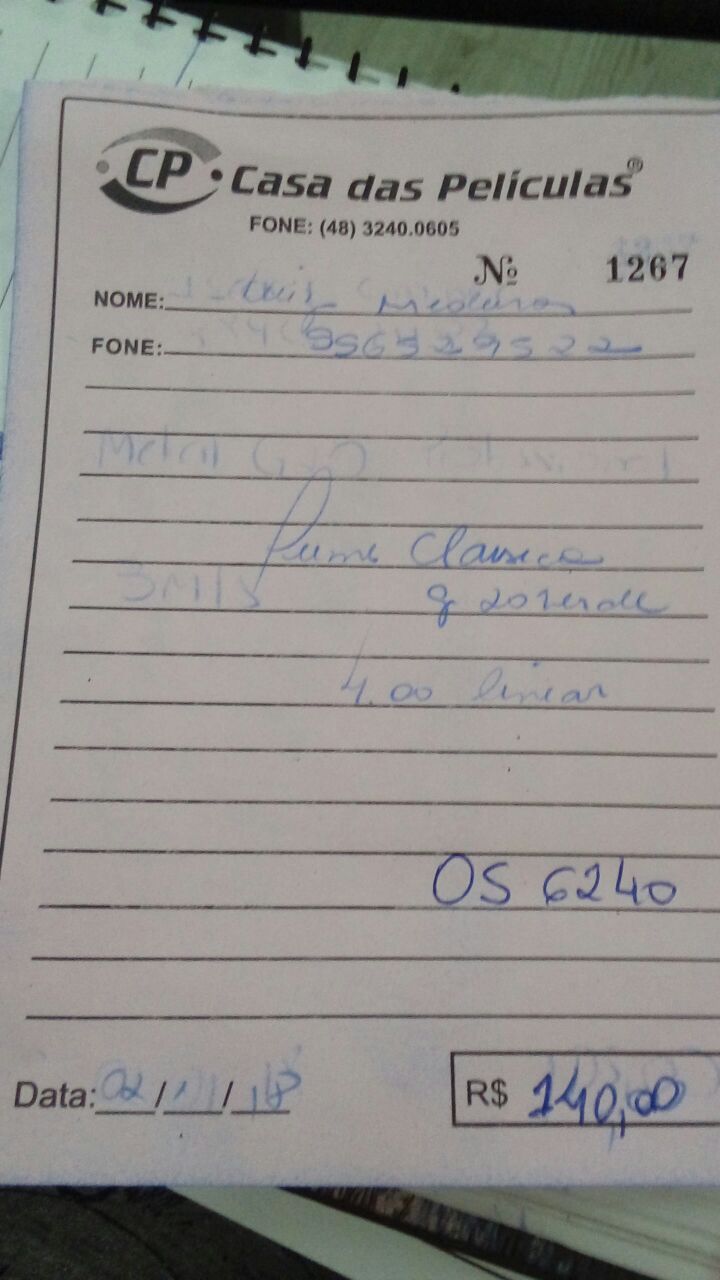 CP Casa das Películas®
FONE: (48) 3240.0605
Nº 1267
NOME: Luiz Medeiros
FONE:
Metal
Fume Classica
g 20 verde
4.00 linear
OS 6240
Data: 02/ / 18
R$ 140,00